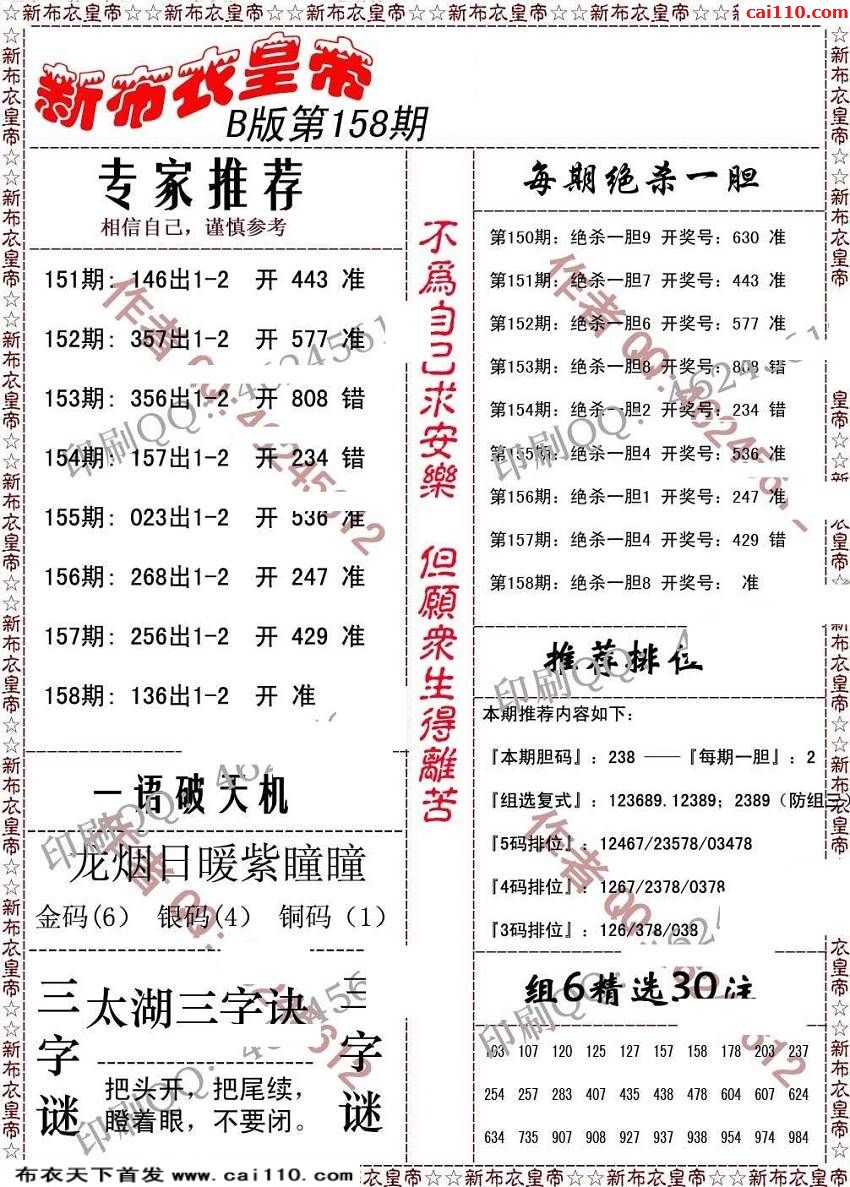 ☆☆新布衣皇帝☆☆新布衣皇帝☆☆新布衣皇帝☆☆新布衣皇帝☆☆新布衣皇帝☆☆
cai110.com
新布衣皇帝
B版第158期
专家推荐
相信自己，谨慎参考
151期: 146出1-2 开 443 准
152期: 357出1-2 开 577 准
153期: 356出1-2 开 808 错
154期: 157出1-2 开 234 错
155期: 023出1-2 开 536 准
156期: 268出1-2 开 247 准
157期: 256出1-2 开 429 准
158期: 136出1-2 开 准
一语破天机
龙烟日暖紫瞳瞳
金码(6) 银码(4) 铜码（1）
三字谜
太湖三字诀
把头开，把尾续，
瞪着眼，不要闭。
三字谜
不為自己求安樂 但願衆生得離苦
每期绝杀一胆
第150期: 绝杀一胆9 开奖号: 630 准
第151期: 绝杀一胆7 开奖号: 443 准
第152期: 绝杀一胆6 开奖号: 577 准
第153期: 绝杀一胆8 开奖号: 808 错
第154期: 绝杀一胆2 开奖号: 234 错
第155期: 绝杀一胆4 开奖号: 536 准
第156期: 绝杀一胆1 开奖号: 247 准
第157期: 绝杀一胆4 开奖号: 429 错
第158期: 绝杀一胆8 开奖号: 准
推荐排位
本期推荐内容如下:
『本期胆码』: 238 ——『每期一胆』: 2
『组选复式』: 123689.12389; 2389（防组三）
『5码排位』: 12467/23578/03478
『4码排位』: 1267/2378/0378
『3码排位』: 126/378/038
组6精选30注
103 107 120 125 127 157 158 178 203 237
254 257 283 407 435 438 478 604 607 624
634 735 907 908 927 937 938 954 974 984
布衣天下首发 www.cai110.com
☆新布衣皇帝☆☆新布衣皇帝☆☆新布衣皇帝☆☆